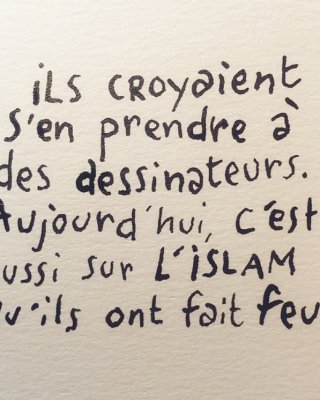 iLS CROYaient
S'en prendre à
des dessinateurs.
Aujourd'hui, c'est
ussi sur L'iSLAM
u'ils ont fait feu